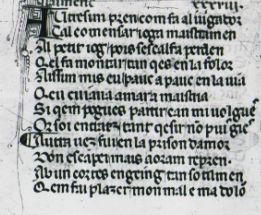 xxxviii.
Atresim pren com fa al iugador
Cal comensar ioga maistrimen
Al petit iog pois sescalfa perden
Qel fa montar tan qes en la folor
Aissim mis eu pauc a pauc en la uia
Qeu cuiaua amar a maistria
Si qem pogues partir can mi uolgues
Or soi entratz tant qeissir no puisc ges
Autra uez fui en la prison damor
Don escapei mas aoram repren
Ab un cortes engeing tan sotilmen
Qem fa plazer mon mal e ma dolor